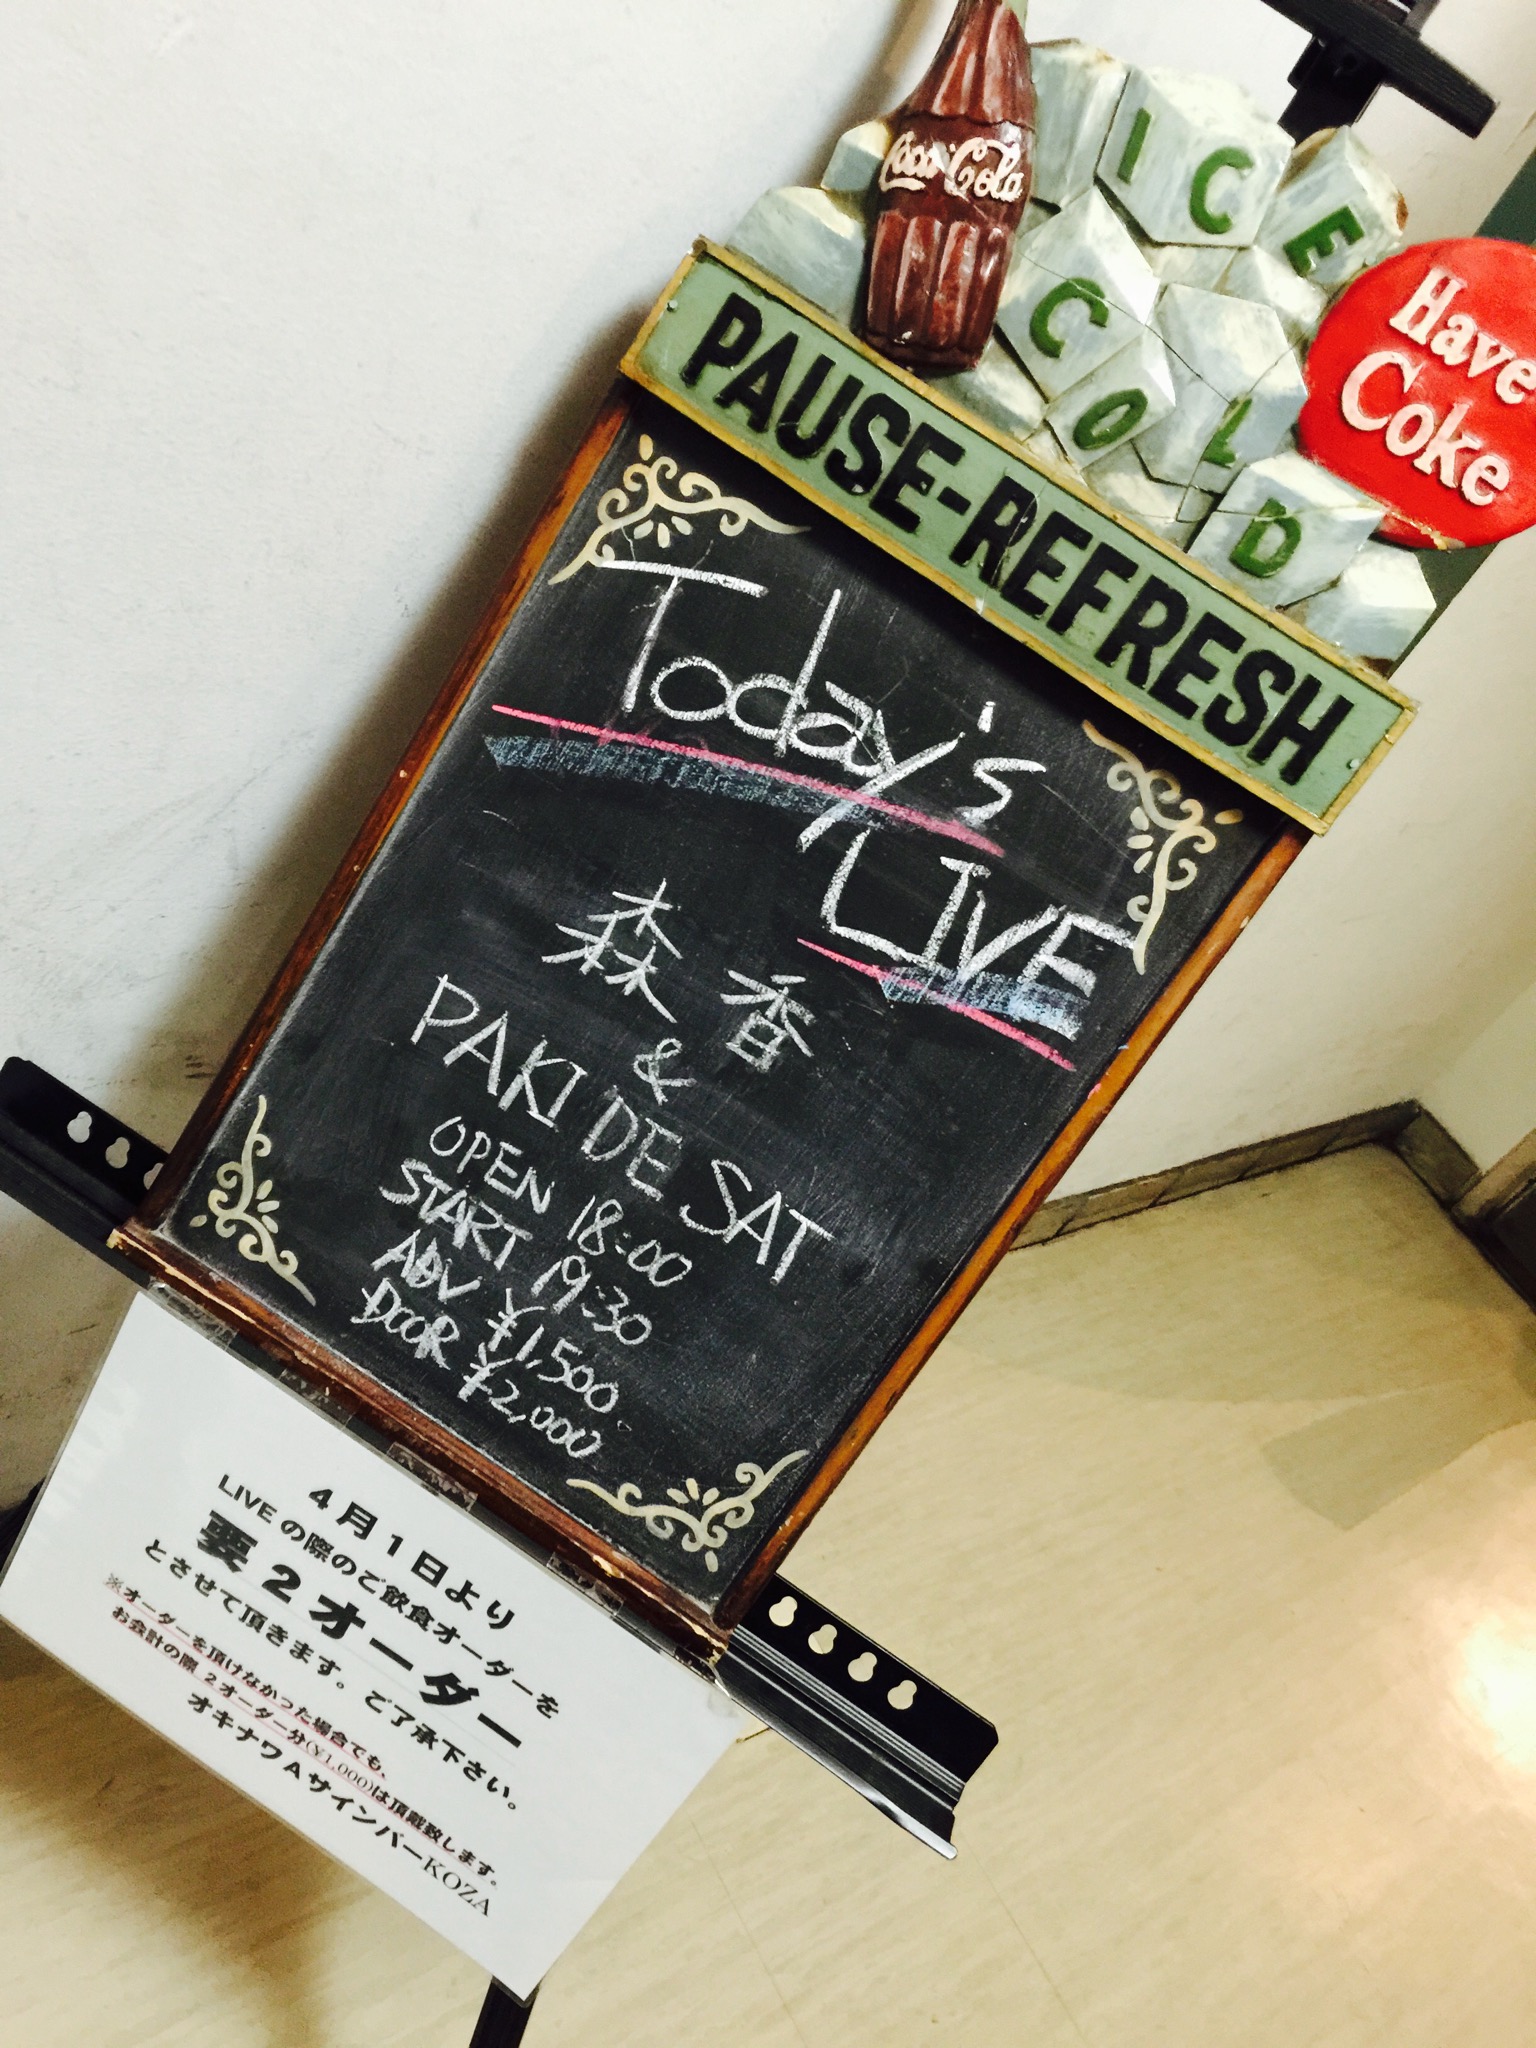 Coca-Cola
ICE
COLD
Have a
Coke
PAUSE-REFRESH
Today's
LIVE
森 香
&
PAKI DE SAT
OPEN 18:00
START 19:30
ADV ¥1,500.
DOOR ¥2,000
4月1日より
LIVEの際のご飲食オーダーを
要2オーダー
とさせて頂きます。ご了承下さい。
※オーダーを頂けなかった場合でも、
お会計の際 2オーダー分(¥1,000)は頂戴致します。
オキナワAサインバーKOZA